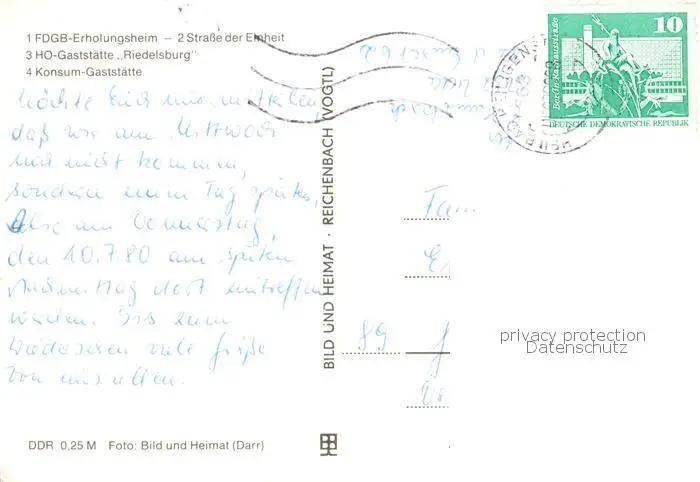 1 FDGB-Erholungsheim – 2 Straße der Einheit
3 HO-Gaststätte „Riedelsburg"
4 Konsum-Gaststätte
Möchte Euch nur mitteilen,
daß wir am Mittwoch
noch nicht kommen,
sondern einen Tag später,
Also am Donnerstag,
den 10.7.80 am späten
Nachmittag dort eintreffen
werden. Bis zum
Wiedersehen viele Grüße
von uns allen.
DDR 0,25 M Foto: Bild und Heimat (Darr)
BILD UND HEIMAT · REICHENBACH (VOGTL)
10
Berlin, Rathausstraße
DEUTSCHE DEMOKRATISCHE REPUBLIK
Fam
89
privacy protection
Datenschutz